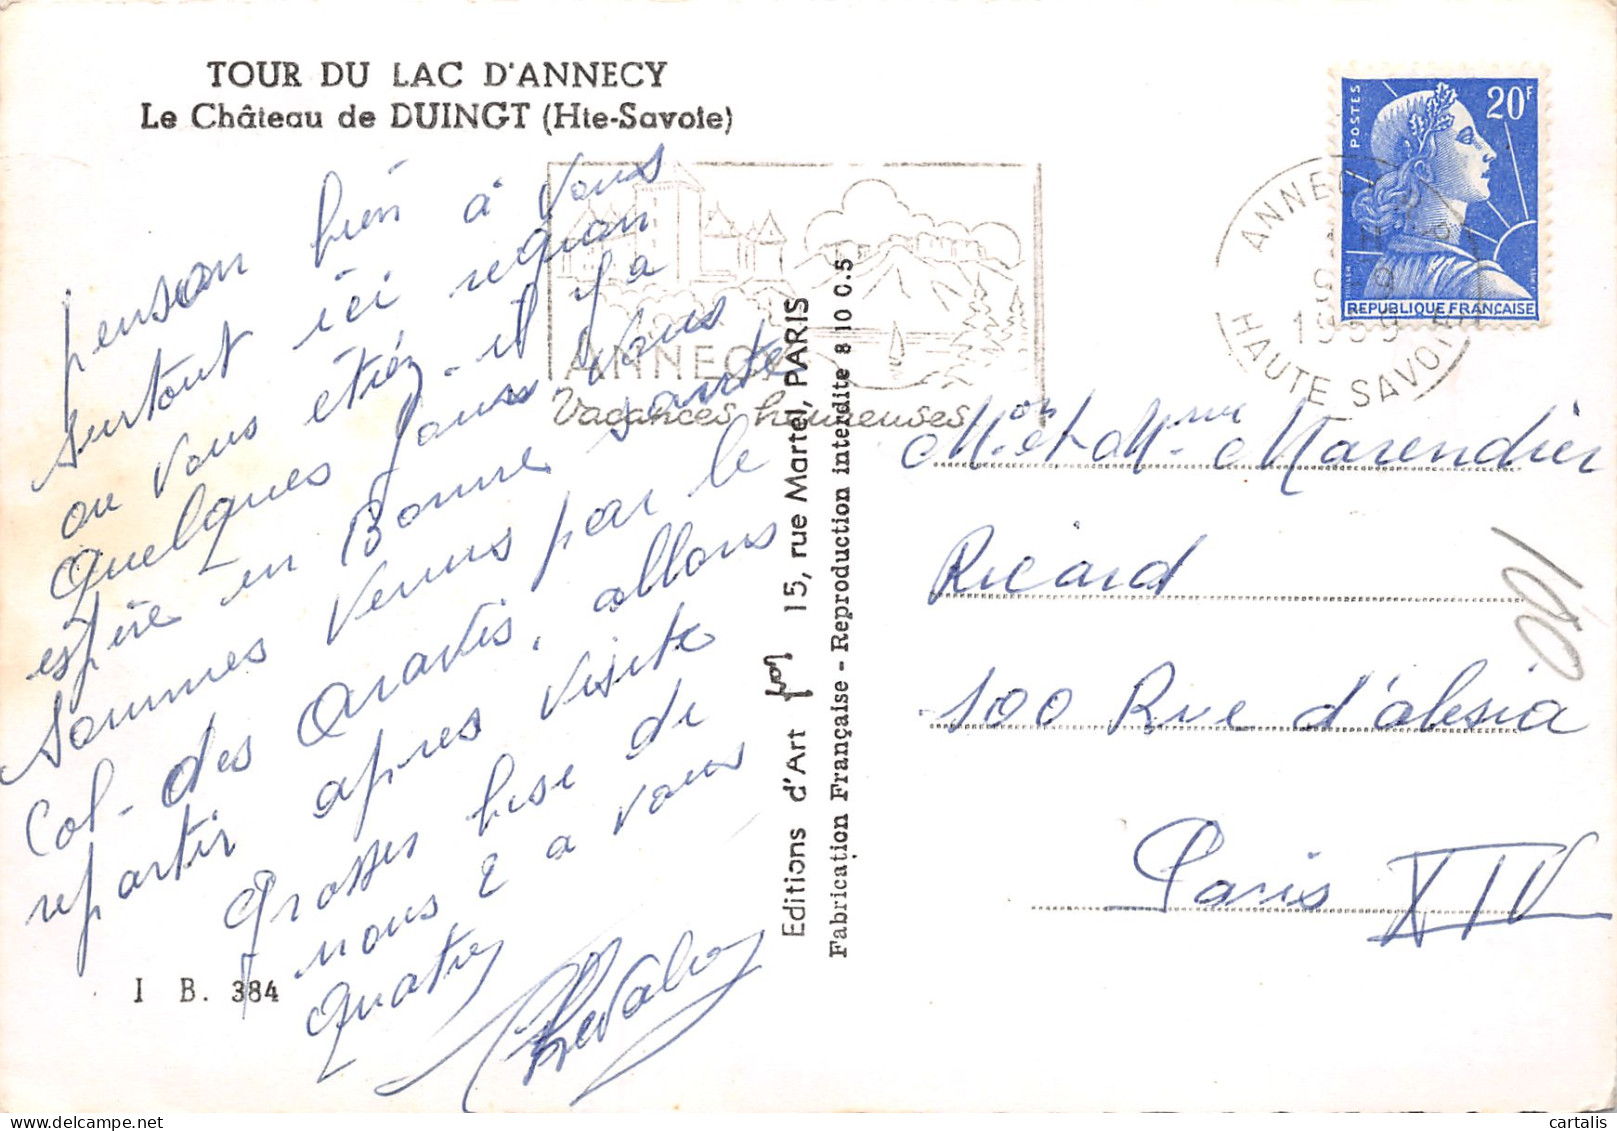 TOUR DU LAC D'ANNECY
Le Château de DUINGT (Hte-Savoie)
penson bien à vous
surtout ici
ou vous étiez il y a
quelques jours vous
espère en Bonne santé
sommes venus par le
Col- des Aravis. allons
repartir apres visite
Grosses bise de
nous 2 a vous
quatre
Chevalier
I B. 384
ANNECY
Vacances heureuses
Editions d'Art 15, rue Martel, PARIS
Fabrication Française - Reproduction interdite 8 10 0.5
POSTES
20F
REPUBLIQUE FRANÇAISE
ANNECY
1959
HAUTE SAVOIE
Mon et Mme Marendier
Ricard
100 Rue d'alesia
Paris XIV
cartalis